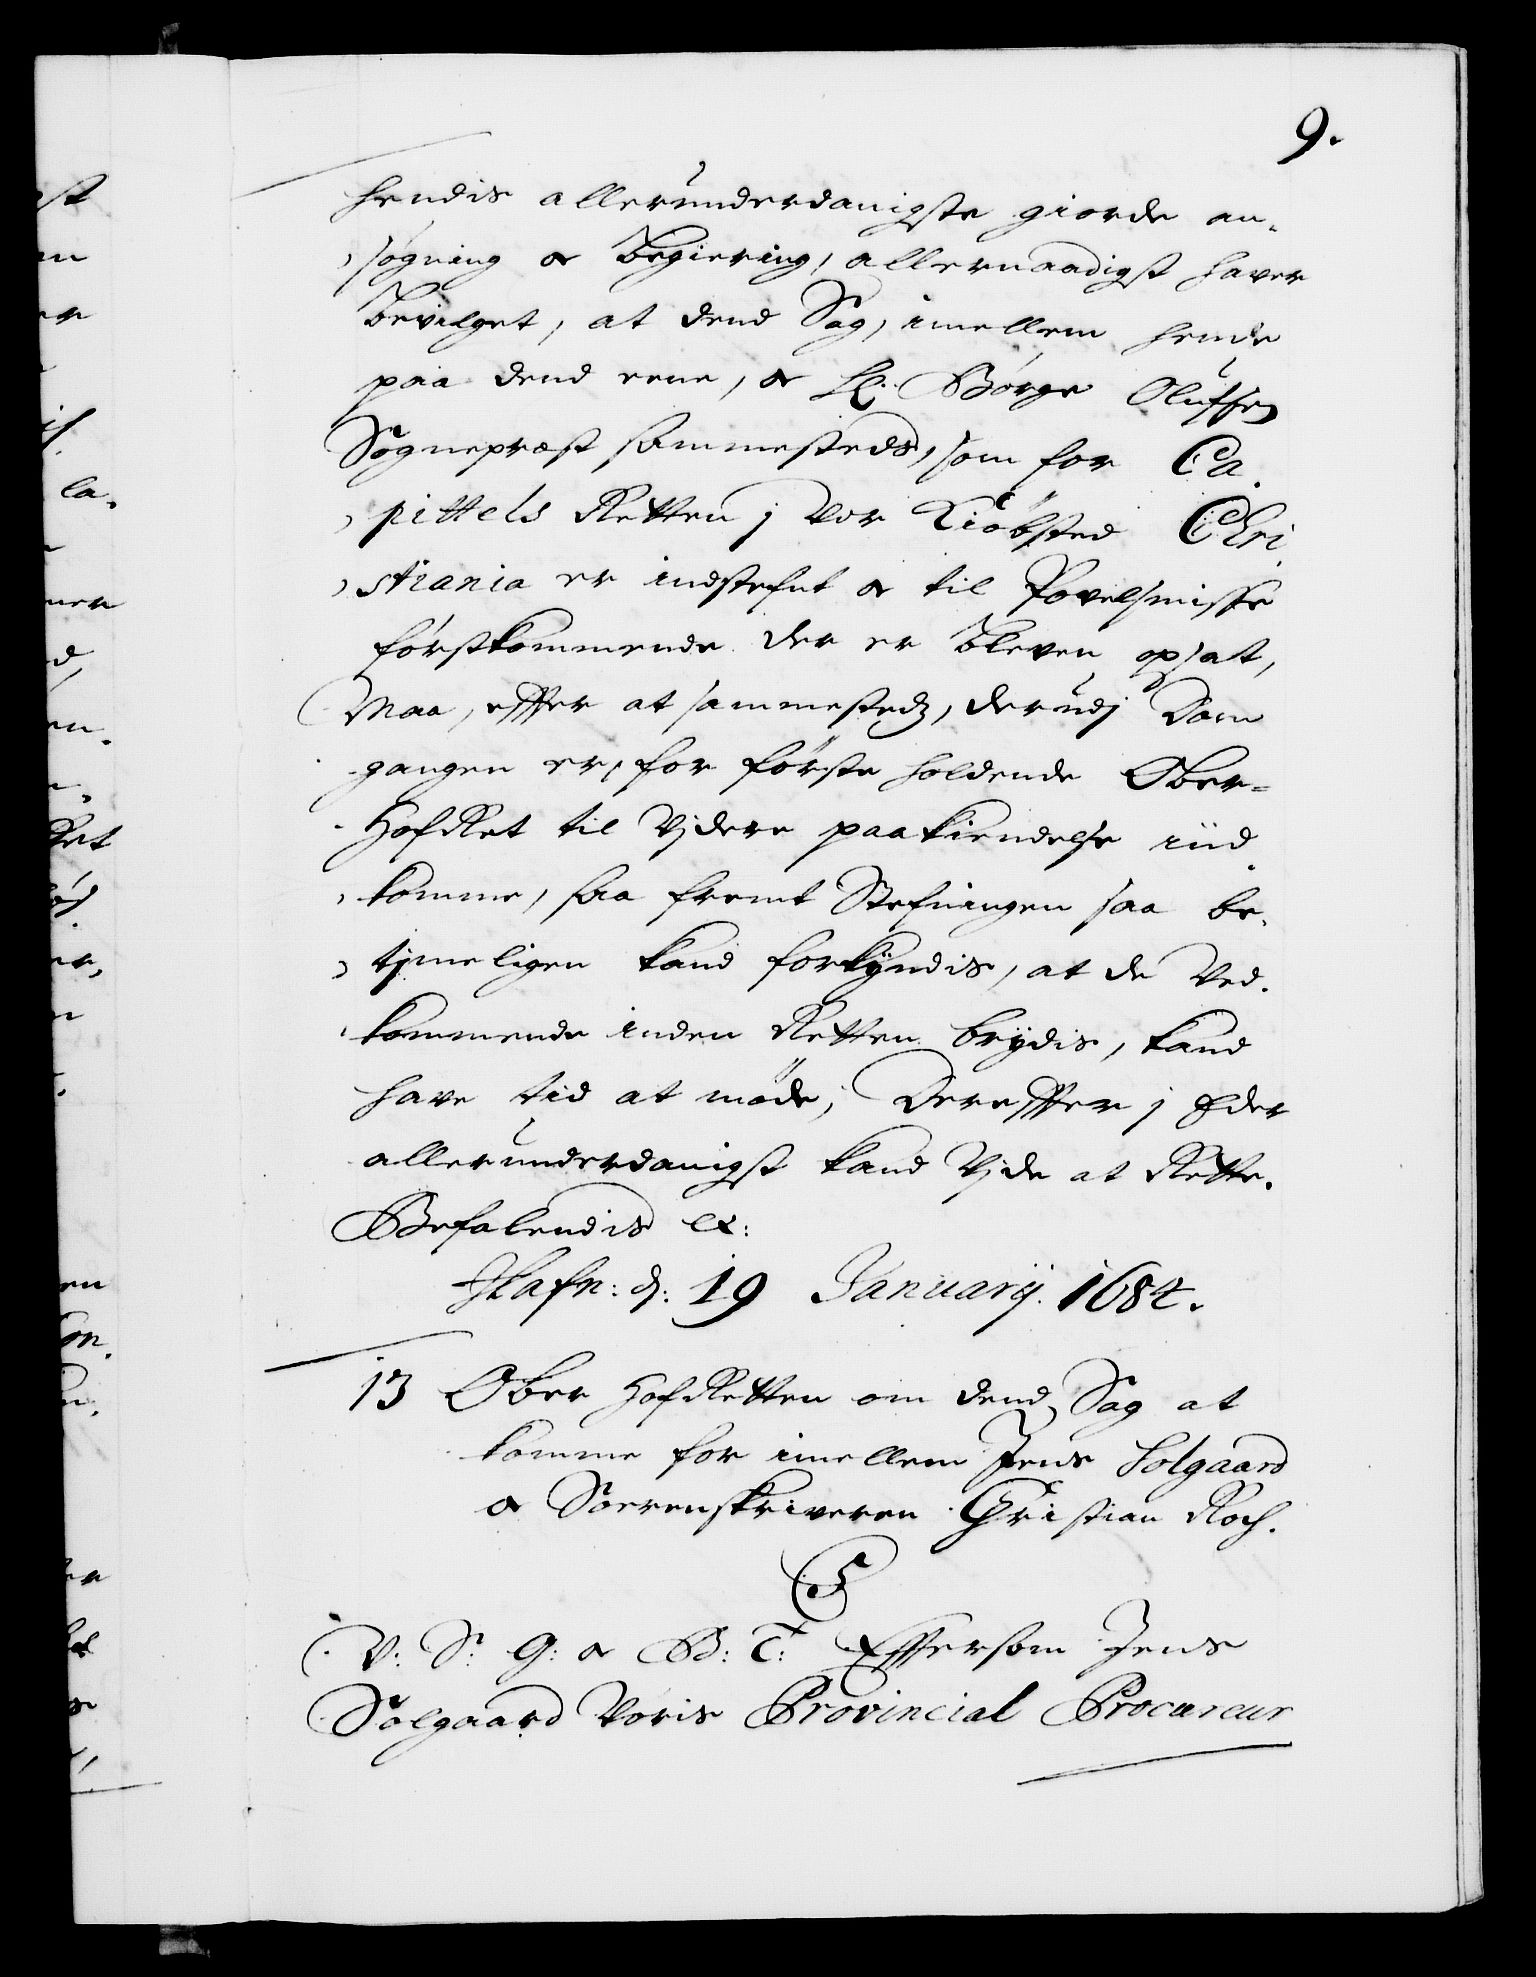 9.
hendis allerunderdanigste giorde an-
søgning oc Begiering, allernaadigst haver
Bevilget, at dend Sag, imellem hende
paa dend eene, oc Hr. Børge Olufsen
Sognepræst sammesteds, som for Ca-
pittels Retten j Vor Kiøbsted Chri-
stiania er indstefnt oc til Povelsmisse
førstkommende der er bleven opsat,
Maa, effter at sammestedz, derudj Dom
gangen er, for første holdende Ober-
HofRet til Vjdere paakiendelse ind-
komme, saa fremt Stefningen saa be-
tjmeligen kand forkyndis, at de Ved-
kommende inden Retten brydis, kand
have tid at møde, Dereffter j Eder
allerunderdanigst kand Vjde at Rette.
Befalendis etc:
Hafn: d: 19 Januarij. 1684.
13 Ober HofRetten om dend Sag at
komme for imellem Jens Solgaard
oc Sorenskriveren Christian Roch.
C5
V: S: G: oc B: T: Effersom Jens
Solgaard Voris Provincial Procureur
st
er
la-
ner
d,
en-
Ret
er,
en